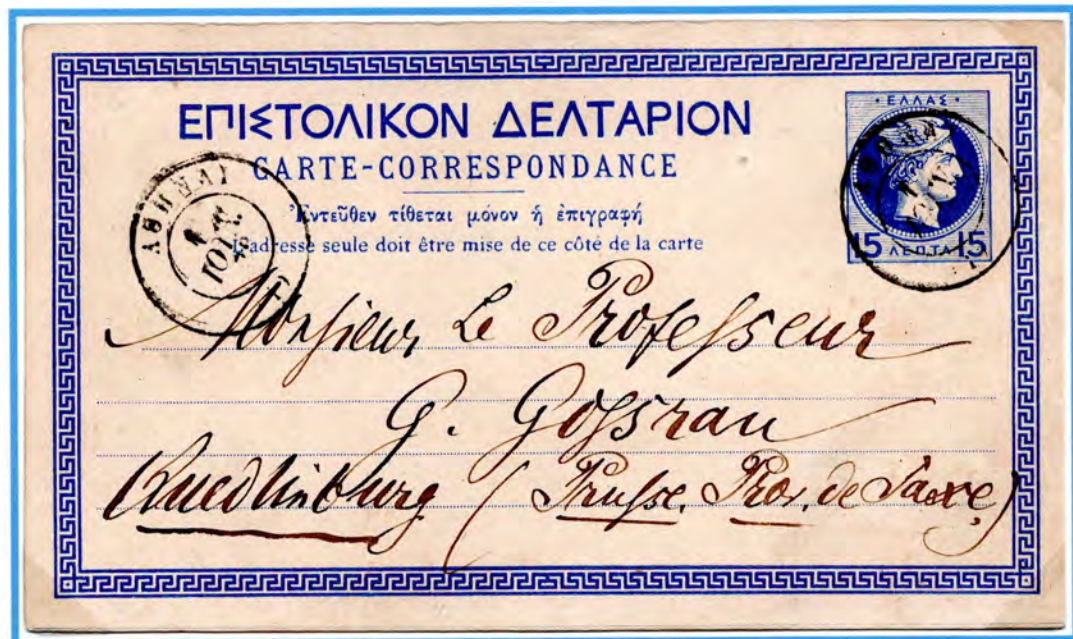 ΕΠΙΣΤΟΛΙΚΟΝ ΔΕΛΤΑΡΙΟΝ
CARTE-CORRESPONDANCE
Ἐντεῦθεν τίθεται μόνον ἡ ἐπιγραφή
L'adresse seule doit être mise de ce côté de la carte
· ΕΛΛΑΣ ·
15 ΛΕΠΤΑ 15
ΑΘΗΝΑΙ
1
ΙΟΥΛ.
ΑΘΗΝΑΙ
Monsieur Le Professeur
G. Gossrau
Quedlinburg (Prusse. Prov. de Saxe)